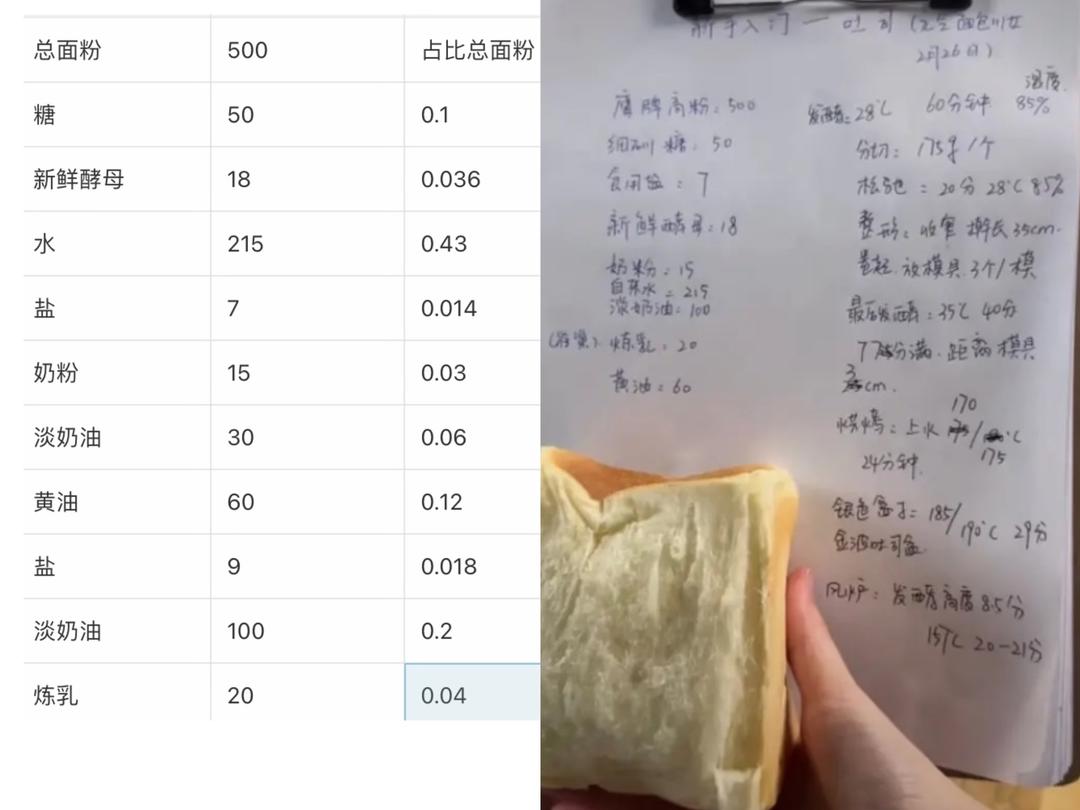 总面粉 500 占比总面粉
糖 50 0.1
新鲜酵母 18 0.036
水 215 0.43
盐 7 0.014
奶粉 15 0.03
淡奶油 30 0.06
黄油 60 0.12
盐 9 0.018
淡奶油 100 0.2
炼乳 20 0.04
新手入门一吐司
2月26日)
鹰牌高粉:500
细砂糖:50
食用盐:7
新鲜酵母:18
奶粉:15
自来水=215
淡奶油:100
炼乳:20
黄油:60
湿度
发酵:28℃ 60分钟 85%
分切:175g/个
松弛:20分 28℃ 85%
整形: 擀长35cm.
卷起.放模具3个/模
最后发酵:35℃ 40分
分满.距离模具
3
cm.
170
烘烤:上火 / ℃
175
24分钟.
银色盒子:185/190℃ 29分
金波吐司盒
风炉:发酵高度8.5分
157℃ 20-21分